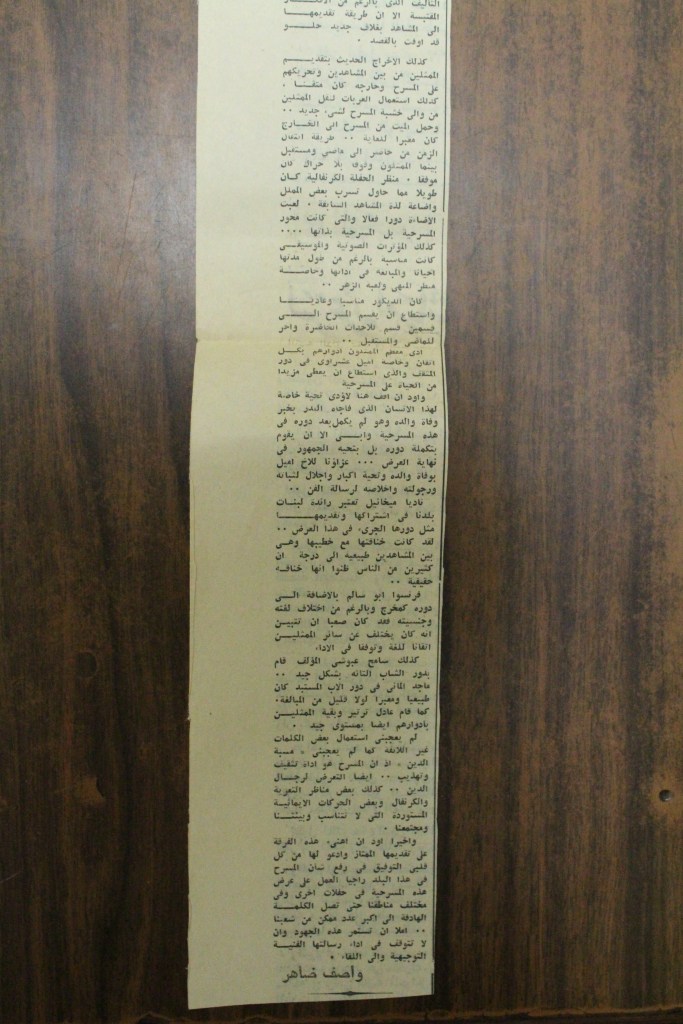 التأليف الذي بالرغم من
الفنية الا ان طريقة تقديمهـــا
الى المشاهد بغلاف جديد حلـــو
قد اوفت بالقصد .
كذلك الاخراج الحديث بتقديـــم
الممثلين من بين المشاهدين وتحريكهم
على المسرح وخارجه كان متقنـا .
كذلك استعمال العربات لنقل الممثلين
من والى خشبة المسرح لشيء جديد ..
وحمل الميت من المسرح الى الخـارج
كان معبرا للغاية .. طريقة انتقال
الزمن من حاضر الى ماضي ومستقبل
بينما الممثلون وقوفا بلا حراك كان
موفقا . منظر الحفلة الكرنفالية كـان
طويلا مما حاول تسرب بعض الملل
واضاعة لذة المشاهد السابقة . لعبت
الاضاءة دورا فعالا والتي كانت محور
المسرحية بل المسرحية بذاتها ....
كذلك المؤثرات الصوتية والموسيقـى
كانت مناسبة بالرغم من طول مدتها
احيانا والمبالغه في ادائها وخاصـــة
منظر المقهى ولعبة الزهر ..
كان الديكور مناسبا وعاديــــا
واستطاع ان يقسم المسرح الــــى
قسمين قسم للاحداث الحاضرة واخر
للماضي والمستقبل ..
ادى معظم الممثلون ادوارهم بكــل
اتقان وخاصة اميل عشراوي في دور
المثقف والذي استطاع ان يعطي مزيدا
من الحياة على المسرحية
واود ان اقف هنا لاؤدي تحية خاصة
لهذا الانسان الذي فاجأه القدر بخبر
وفاة والده وهو لم يكمل بعد دوره في
هذه المسرحية وابـــى الا ان يقوم
بتكملة دوره بل بتحية الجمهور في
نهاية العرض ... عزاؤنا للاخ اميل
بوفاة والده وتحية اكبار واجلال لثباته
ورجولته واخلاصه لرسالة الفن ..
ناديا ميخائيل تعتبر رائدة لبنـات
بلدنا في اشتراكها وتقديمهــــا
مثل دورها الجريء في هذا العرض ..
لقد كانت خناقتها مع خطيبها وهــي
بين المشاهدين طبيعيه الى درجة ان
كثيرين من الناس ظنوا انها خناقـة
حقيقية ..
فرنسوا ابو سالم بالاضافة الــى
دوره كمخرج وبالرغم من اختلاف لغته
وجنسيته فقد كان صعبا ان تتبيـن
انه كان يختلف عن سائر الممثليـن
اتقانا للغة وتوفقا في الاداء
كذلك سامح عبوشي المؤلف قام
بدور الشاب التائه بشكل جيد ..
ماجد الماني في دور الاب المستبد كان
طبيعيا ومعبرا لولا قليل من المبالغة.
كما قام عادل ترتير وبقية الممثليــن
بادوارهم ايضا بمستوى جيد .
لم يعجبني استعمال بعض الكلمات
غير اللائقة كما لم يعجبني « مسبة
الدين » اذ ان المسرح هو اداة تثقيف
وتهذيب .. ايضا التعرض لرجــال
الدين .. كذلك بعض مناظر التعرية
والكرنفال وبعض الحركات الايمائيـة
المستوردة التي لا تتناسب وبيئتنــا
ومجتمعنا .
واخيرا اود ان اهنىء هذه الفرقة
على تقديمها الممتاز وادعو لها من كل
قلبي التوفيق في رفع شأن المسرح
في هذا البلد راجيا العمل على عرض
هذه المسرحية في حفلات اخرى وفي
مختلف مناطقنا حتى تصل الكلمـــة
الهادفة الى اكبر عدد ممكن من شعبنا
.. املا ان تستمر هذه الجهود وان
لا تتوقف في اداء رسالتها الفنيـة
التوجيهية والى اللقاء .
واصف ضاهر